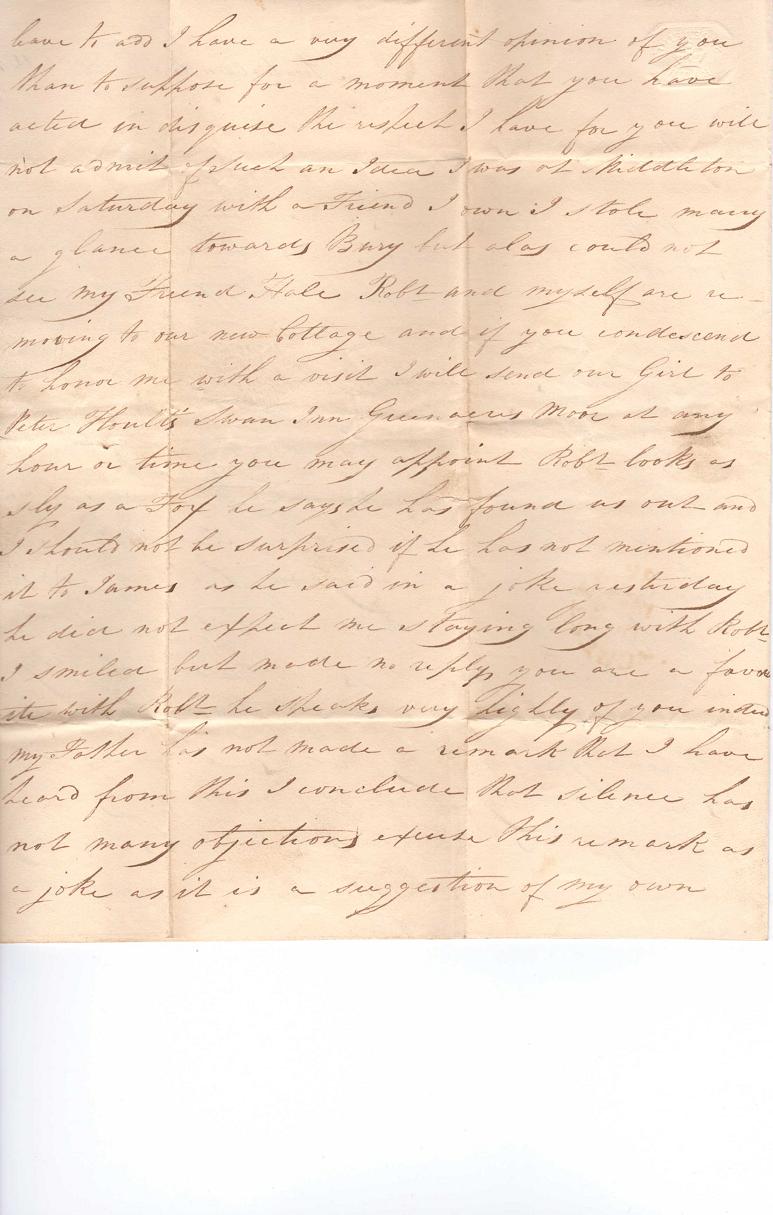 leave to add I have a very different opinion of you
than to suppose for a moment that you have
acted in disguise the respect I have for you will
not admit of such an Idea I was at Middleton
on Saturday with a Friend I own I stole many
a glance towards Bury but alas could not
see my Friend Hale Robt and myself are re-
moving to our new Cottage and if you condescend
to honor me with a visit I will send our Girl to
Peter Hoult's Swan Inn Greenacres Moor at any
hour or time you may appoint Robt looks as
sly as a Fox he says he has found us out and
I should not be surprised if he has not mentioned
it to James as he said in a joke yesterday
he did not expect me staying long with Robt
I smiled but made no reply, you are a favou
ite with Robt he speaks very highly of you indeed
my Father has not made a remark that I have
heard from this I conclude that silence has
not many objections excuse this remark as
a joke as it is a suggestion of my own